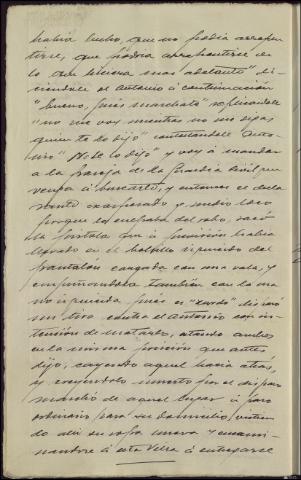 había hecho, que no podía arrepen
tirse, que podría arrepentirse de
lo que hiciera mas adelante" di-
ciendole el Antonio á continuación
"bueno, pues marchate" replicandole
"no me voy mientras no me digas
quien te lo dijo" contestandole Anto-
nio "No te lo digo" y voy á mandar
a la pareja de la Guardia Civil que
venga á buscarte, y entonces el decla
rante exasperado y medio loco
porque lo culpaba del robo, sacó
la pistola que á prevision habia
llevado en el bolsillo izquierdo del
pantalón cargada con una bala, y
empuñandola tambien con la ma
no izquierda pues es "zurdo" disparó
un tiro contra el Antonio con in-
tención de matarlo, estando ambos
en la misma posición que antes
dijo, cayendo aquel hacia atrás,
y creyendolo muerto por el disparo
marchó de aquel lugar á paso
ordinario para su domicilio, vistien
do alli su ropa nueva y encami-
nandose á esta Villa á entregarse